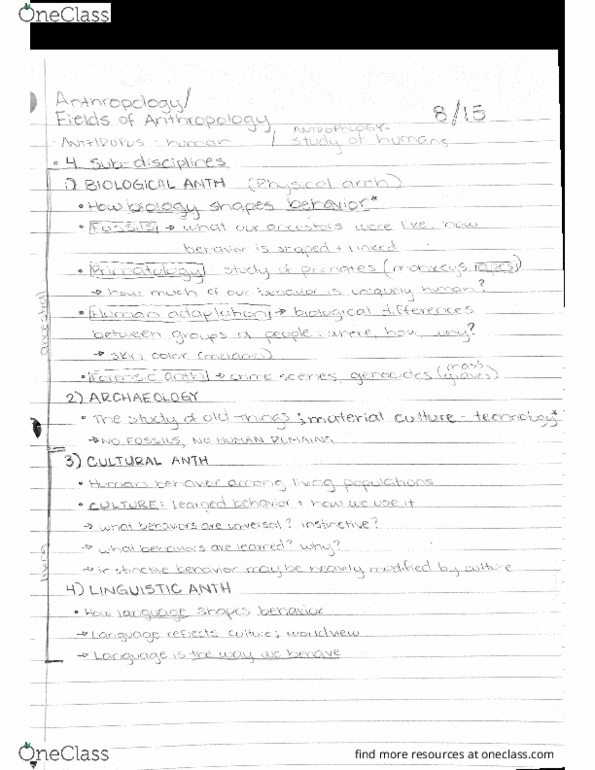 OneClass
Anthropology/
Fields of Anthropology
8/15
ANTHROPUS - human / ANTROPOLOGY - study of humans
• 4 Sub-disciplines
1) BIOLOGICAL ANTH (Physical anth)
• How biology shapes behavior*
• Fossils → what our ancestors were like, how
behavior is shaped + linked
• Primatology - study of primates (monkeys, apes)
→ how much of our behavior is uniquely human?
• Human adaptation → biological differences
between groups of people; where, how, why?
→ skin color (melanin)
• Forensic anth → crime scenes, genocides (mass graves)
ancestral
2) ARCHAEOLOGY
• The study of old things; material culture - technology*
→ NO FOSSILS, NO HUMAN REMAINS
3) CULTURAL ANTH
• Human behavior among living populations
• CULTURE: learned behavior + how we use it
→ what behaviors are universal? instinctive?
→ what behaviors are learned? why?
→ instinctive behavior may be heavily modified by culture
living
4) LINGUISTIC ANTH
• How language shapes behavior
→ Language reflects culture; worldview
→ Language is the way we behave
OneClass
find more resources at oneclass.com